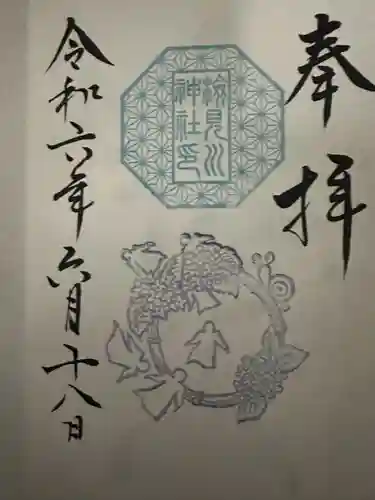 奉拝
検見川
神社印
令和六年六月十八日